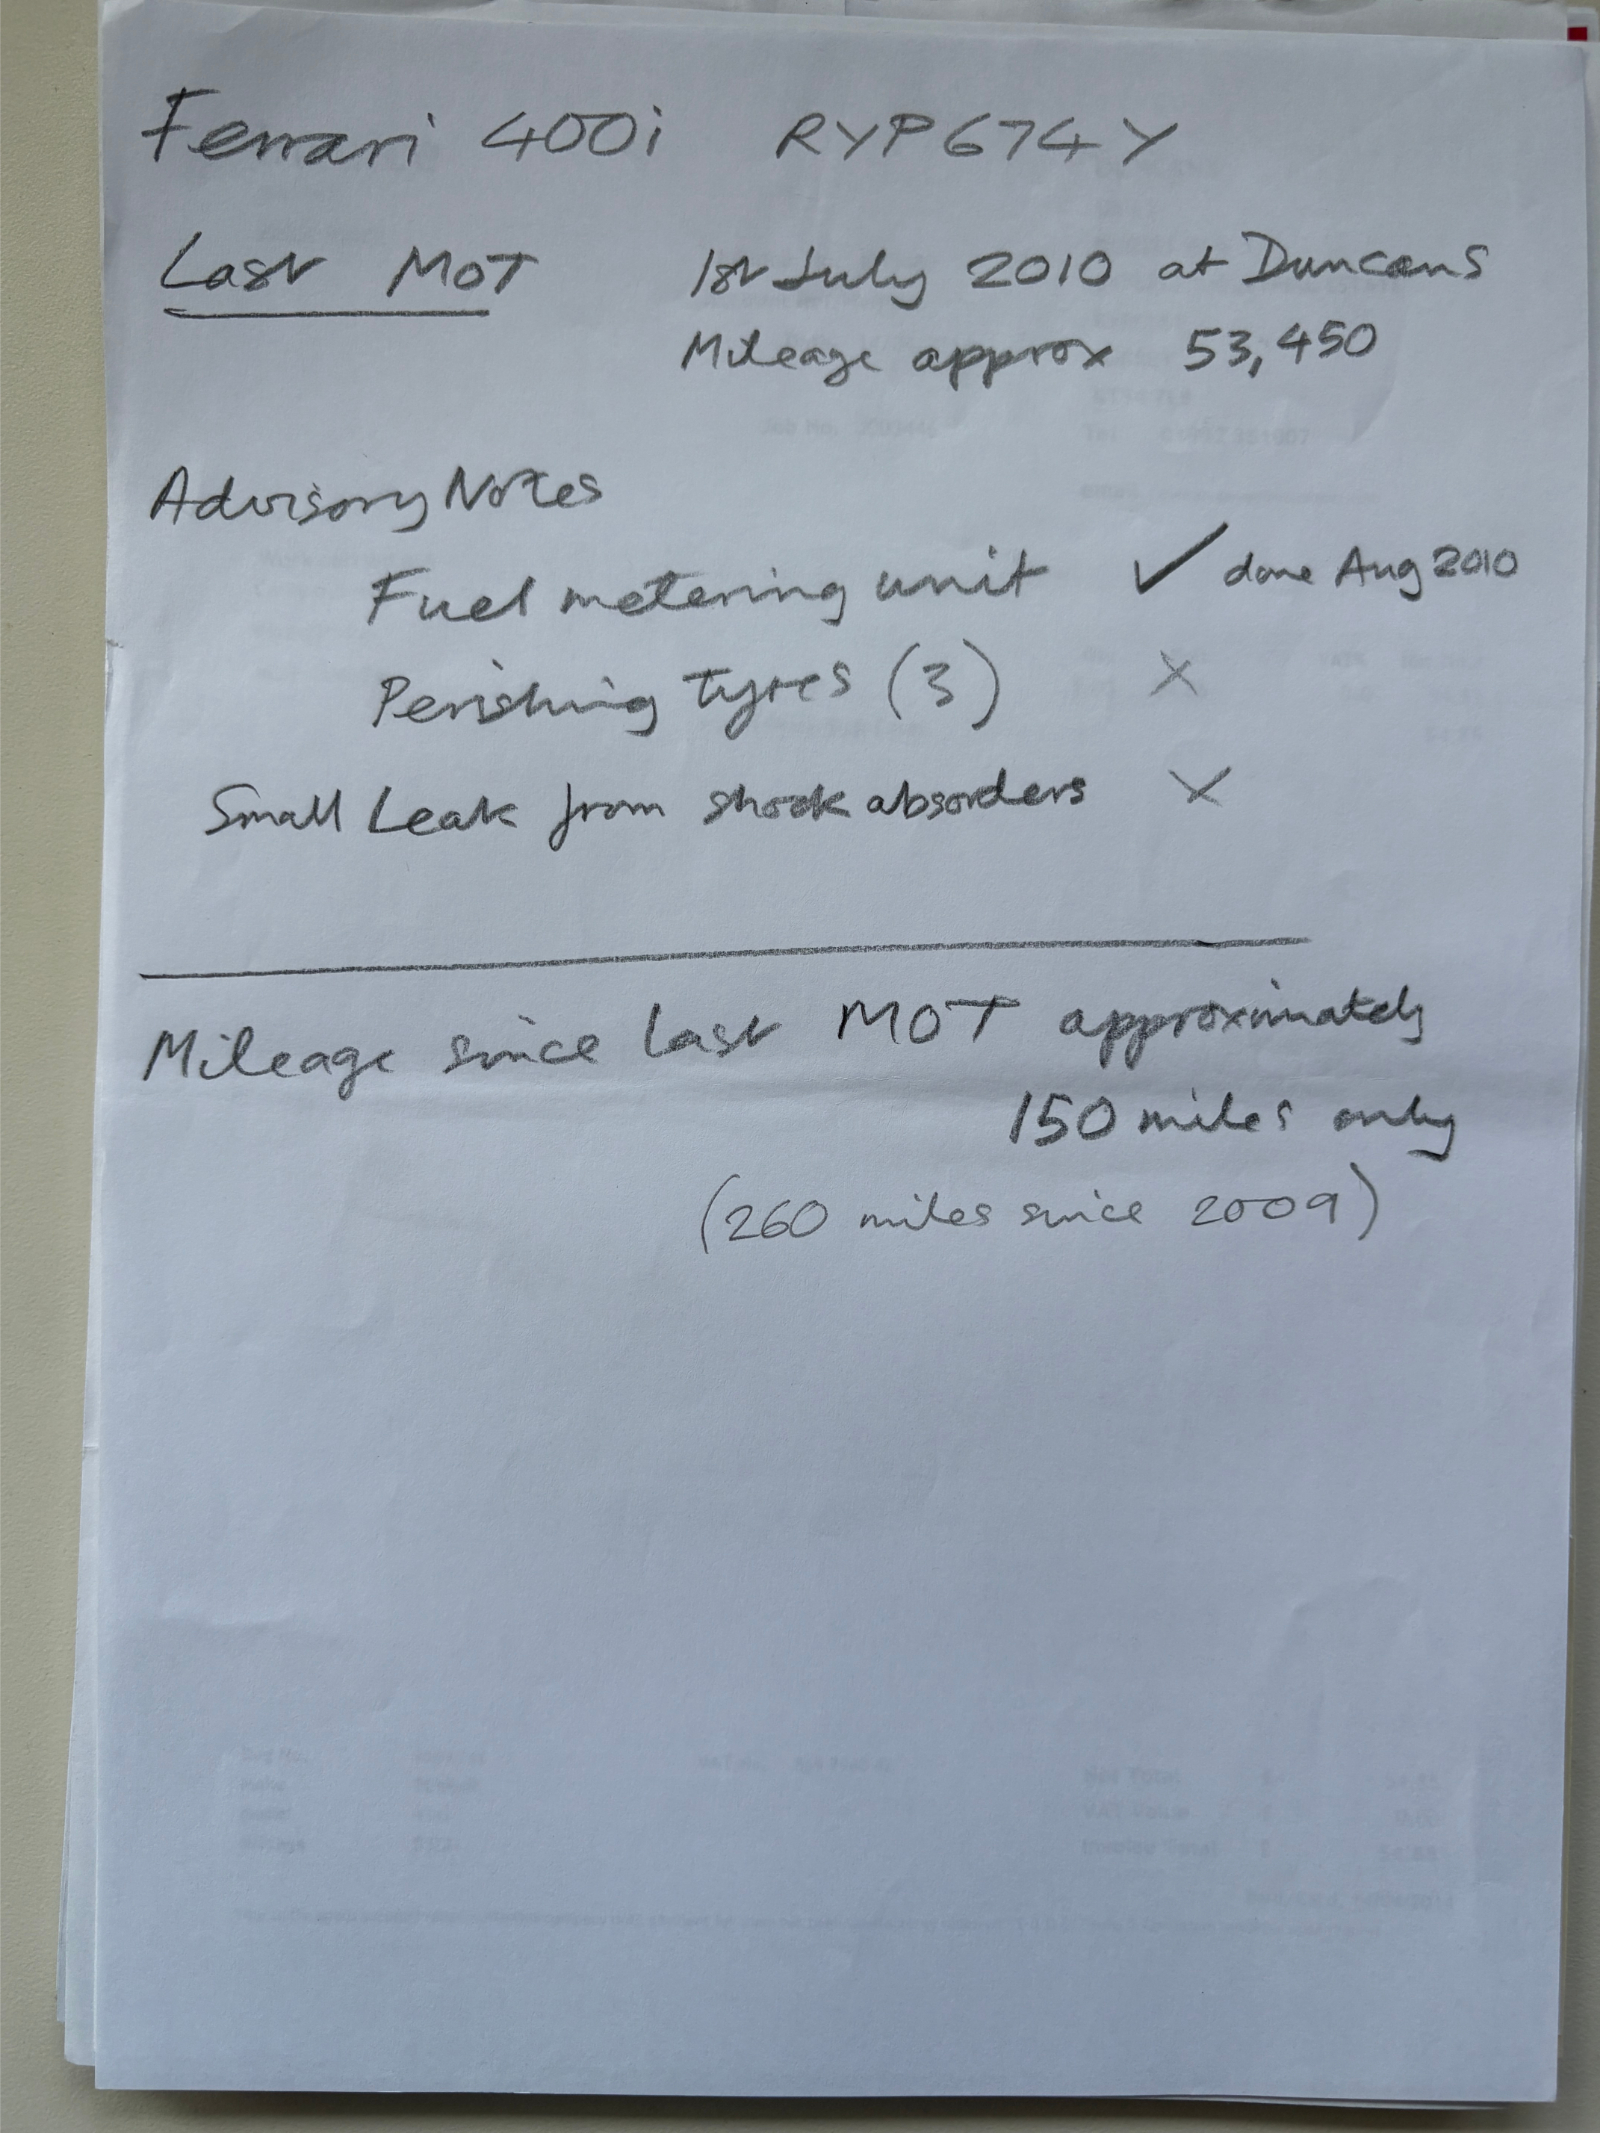 Ferrari 400i RYP 674Y
Last MOT 1st July 2010 at Duncans
Mileage approx 53,450
Advisory Notes
Fuel metering unit ✓ done Aug 2010
Perishing tyres (3) X
Small Leak from shock absorders X
Mileage since last MOT approximately
150 miles only
(260 miles since 2009)